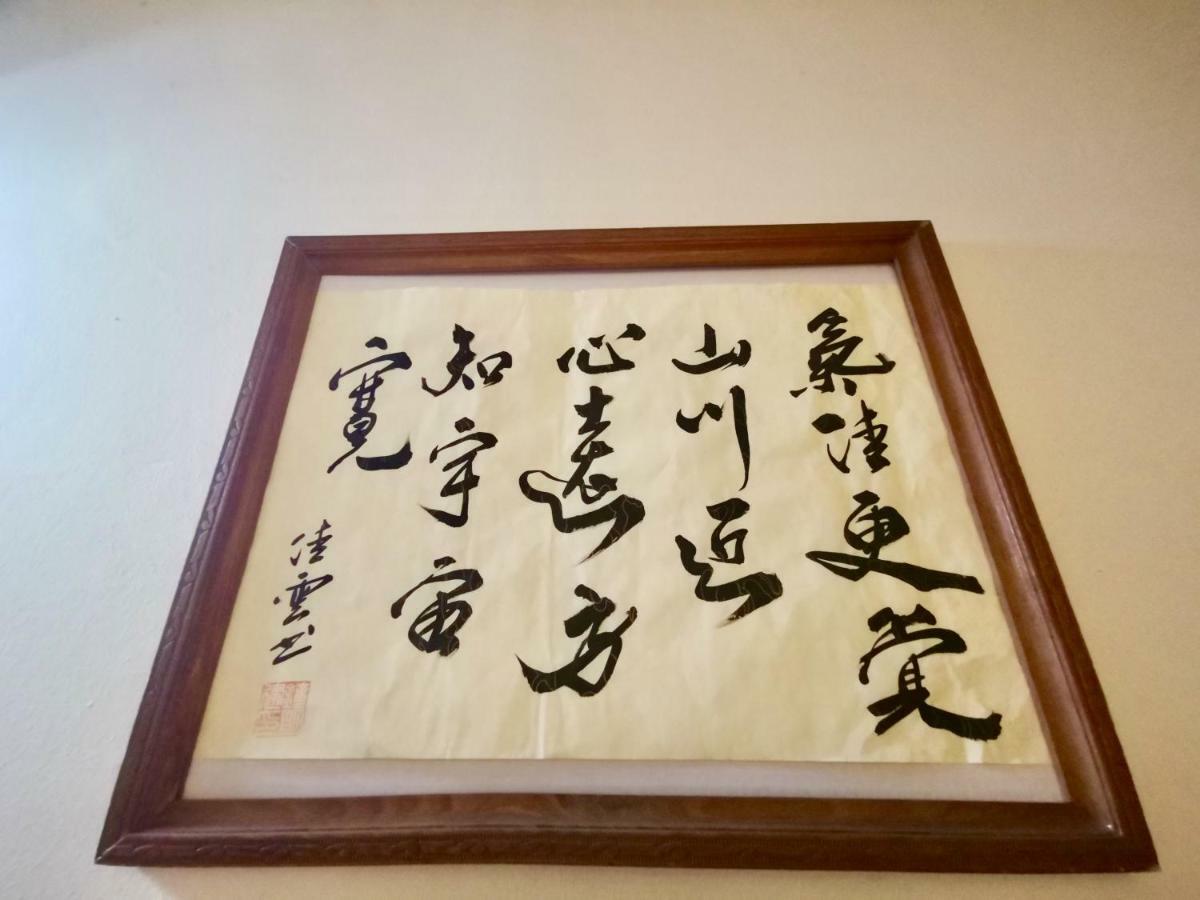 氣清更覺
山川近
心遠方
知宇宙
寬
佳雲书